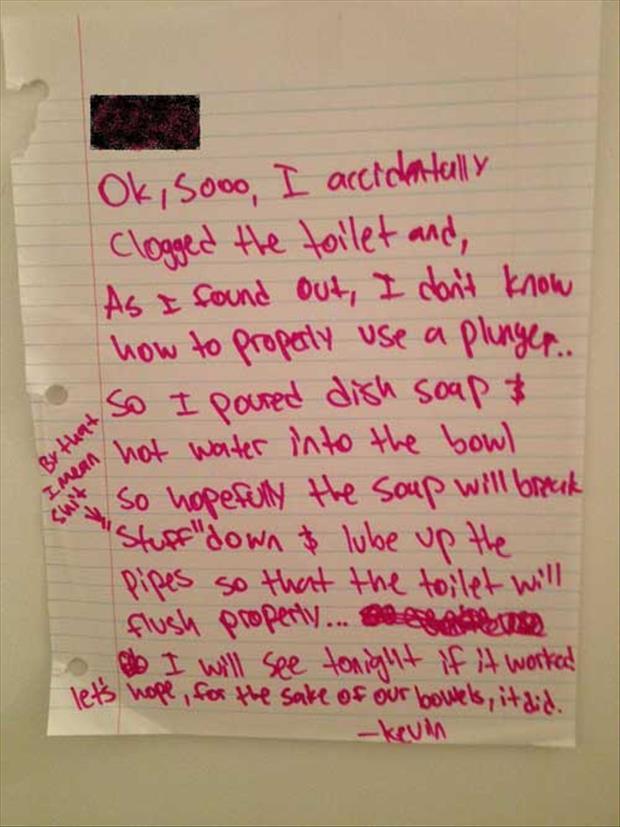 Ok, Sooo, I accidentally
clogged the toilet and,
As I found out, I don't know
how to properly use a plunger..
So I poured dish soap &
hot water into the bowl
so hopefully the soap will break
By that
I mean
shit
"Stuff" down & lube up the
pipes so that the toilet will
flush properly...
I will see tonight if it worked
let's hope, for the sake of our bowels, it did.
-Kevin